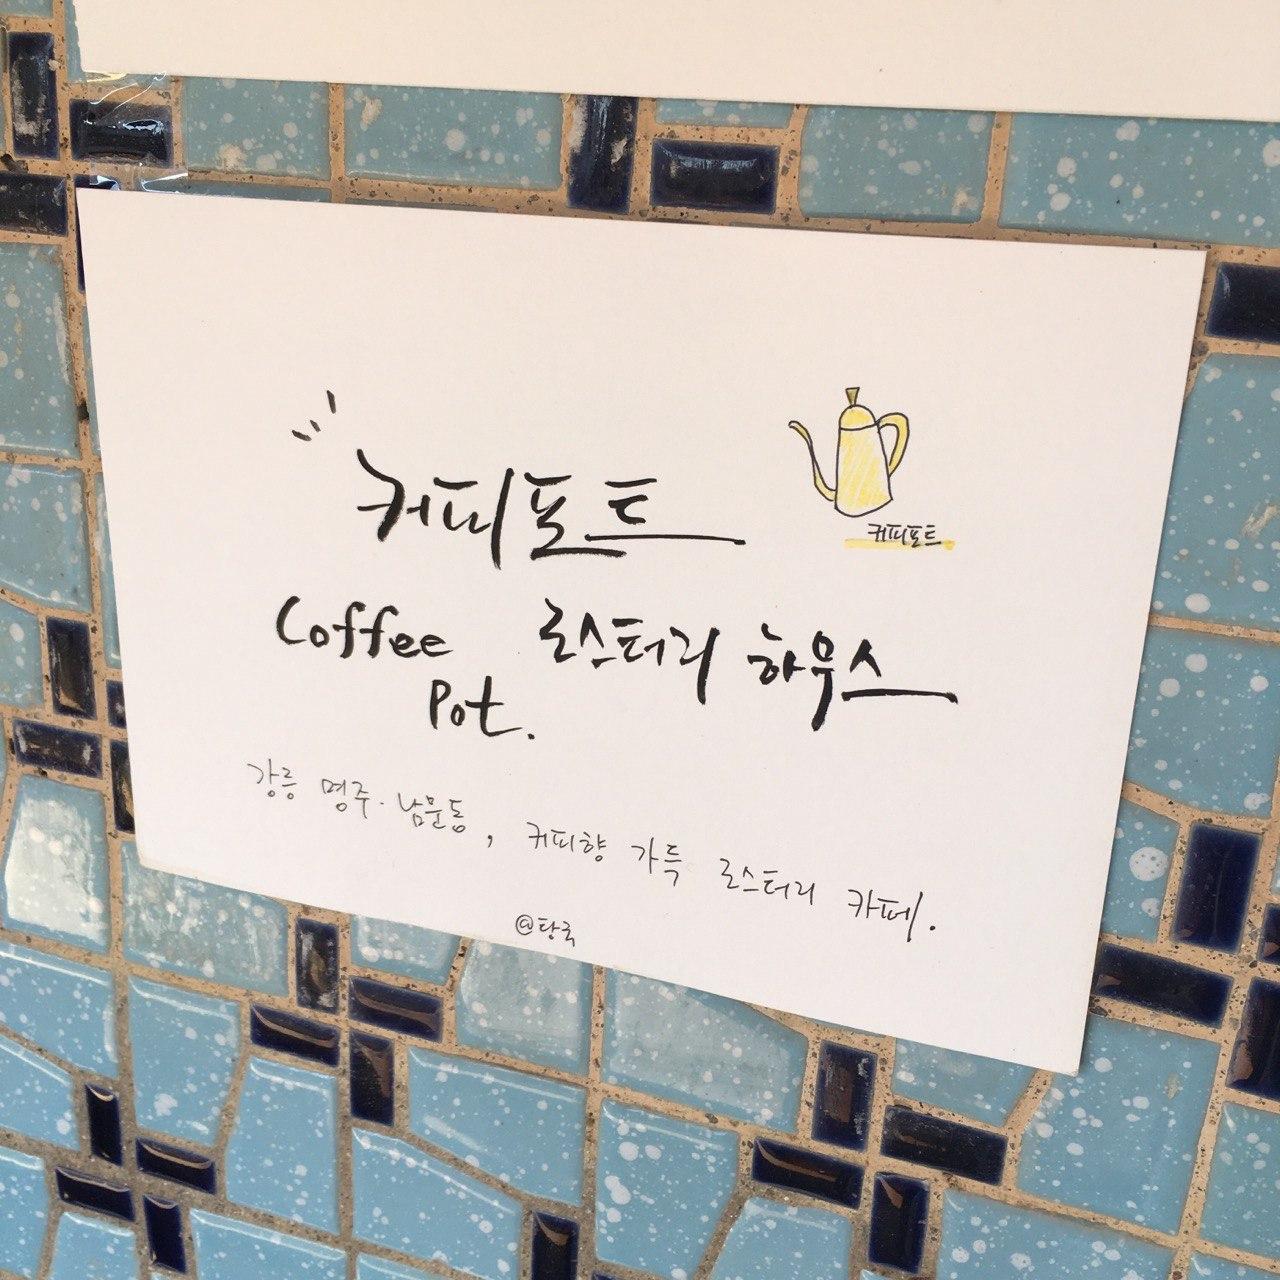 커피포트
커피포트
Coffee 로스터리 하우스
Pot.
강릉 명주·남문동, 커피향 가득 로스터리 카페.
@탕국